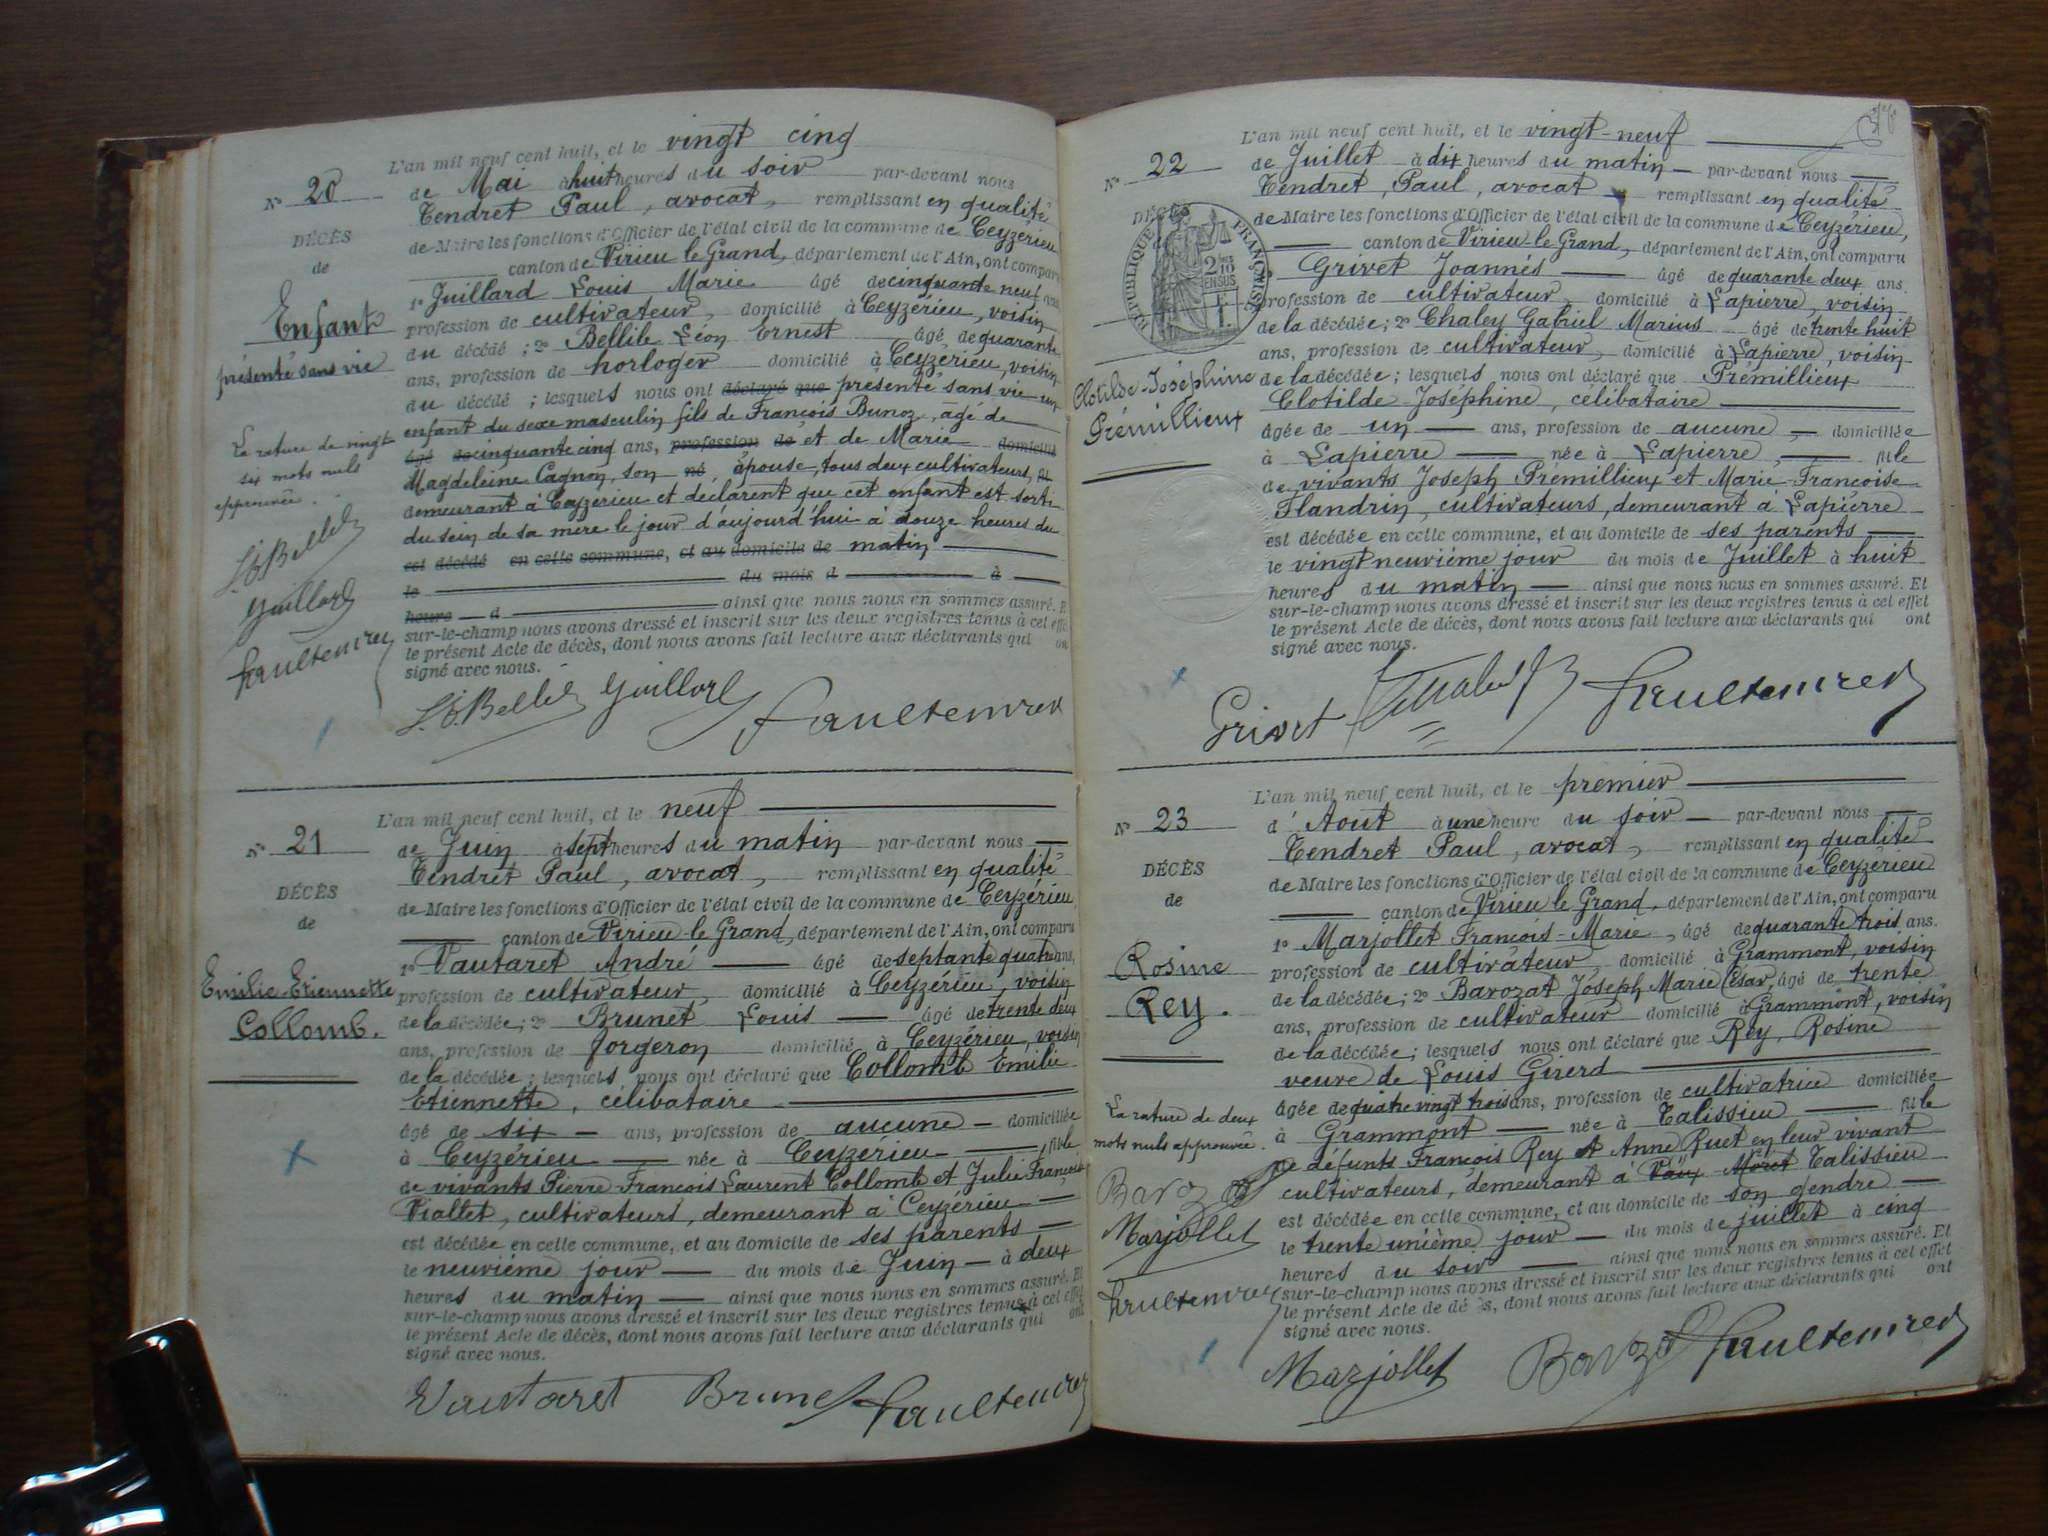 L'an mil neuf cent huit, et le vingt cinq
N° 20
de Mai à huit heures du soir par-devant nous
Tendret Paul, avocat, remplissant en qualité
DÉCÈS
de Maire les fonctions d'Officier de l'état civil de la commune de Ceyzérieu
de
canton de Virieu le Grand, département de l'Ain, ont comparu
Enfant
1° Juillard Louis Marie âgé de cinquante neuf ans
profession de cultivateur, domicilié à Ceyzérieu, voisin
présenté sans vie
du décédé ; 2° Bellile Léon Ernest âgé de quarante
ans, profession de horloger domicilié à Ceyzérieu, voisin
du décédé ; lesquels nous ont déclaré que présenté sans vie un
enfant du sexe masculin fils de François Bunoz, âgé de
La rature de vingt
six mots nuls
approuvée.
âgé de cinquante cinq ans, profession de et de Marie domicilié
Magdeleine Cagnon, son né épouse, tous deux cultivateurs, fil
demeurant à Ceyzerieu et déclarent que cet enfant est sorti
du sein de sa mère le jour d'aujourd'hui à douze heures du
est décédé en cette commune, et au domicile de matin
le du mois d à
heure d ainsi que nous nous en sommes assuré. Et
sur-le-champ nous avons dressé et inscrit sur les deux registres tenus à cet effet
le présent Acte de décès, dont nous avons fait lecture aux déclarants qui ont
signé avec nous.
L'an mil neuf cent huit, et le neuf
N° 21
de Juin à sept heures du matin par-devant nous
Tendret Paul, avocat, remplissant en qualité
DÉCÈS
de Maire les fonctions d'Officier de l'état civil de la commune de Ceyzérieu
de
canton de Virieu-le Grand, département de l'Ain, ont comparu
1° Vautaret André âgé de septante quatre ans,
Emilie-Etiennette
Collomb.
profession de cultivateur, domicilié à Ceyzérieu, voisin
de la décédée ; 2° Brunet Louis âgé de trente deux
ans, profession de forgeron domicilié à Ceyzérieu, voisin
de la décédée ; lesquels nous ont déclaré que Collomb Emilie
Etiennette, célibataire
âgé de six ans, profession de aucune domiciliée
à Ceyzérieu née à Ceyzérieu, fille
de vivants Pierre François Laurent Collomb et Julie Françoise
Viallet, cultivateurs, demeurant à Ceyzérieu
est décédée en cette commune, et au domicile de ses parents
le neuvième jour du mois de Juin à deux
heures du matin ainsi que nous nous en sommes assuré. Et
sur-le-champ nous avons dressé et inscrit sur les deux registres tenus à cet effet
le présent Acte de décès, dont nous avons fait lecture aux déclarants qui ont
signé avec nous.
Vautaret Brunet
L'an mil neuf cent huit, et le vingt-neuf
N° 22
de Juillet à dix heures du matin par-devant nous
Tendret, Paul, avocat remplissant en qualité
DÉCÈS
de Maire les fonctions d'Officier de l'état civil de la commune de Ceyzérieu,
canton de Virieu-le Grand, département de l'Ain, ont comparu
RÉPUBLIQUE FRANÇAISE
2/10 EN SUS
Grivet Joannés âgé de quarante deux ans
profession de cultivateur, domicilié à Lapierre, voisin
de la décédée ; 2° Chaley Gabriel Marius âgé de trente huit
ans, profession de cultivateur, domicilié à Lapierre, voisin
Clotilde-Joséphine
Prémillieux
de la décédée ; lesquels nous ont déclaré que Prémillieux
Clotilde Joséphine, célibataire
âgée de un ans, profession de aucune, domiciliée
à Lapierre née à Lapierre, fille
de vivants Joseph Prémillieux et Marie-Françoise
Flandrin, cultivateurs, demeurant à Lapierre
est décédée en cette commune, et au domicile de ses parents
le vingt neuvième jour du mois de Juillet à huit
heures du matin ainsi que nous nous en sommes assuré. Et
sur-le-champ nous avons dressé et inscrit sur les deux registres tenus à cet effet
le présent Acte de décès, dont nous avons fait lecture aux déclarants qui ont
signé avec nous.
Grivet
L'an mil neuf cent huit, et le premier
N° 23
d'Aout à une heure du soir par-devant nous
Tendret Paul, avocat, remplissant en qualité
DÉCÈS
de Maire les fonctions d'Officier de l'état civil de la commune de Ceyzérieu
de
canton de Virieu le Grand, département de l'Ain, ont comparu
1° Marjollet François-Marie, âgé de quarante trois ans.
Rosine
Rey.
profession de cultivateur domicilié à Grammont, voisin
de la décédée ; 2° Barozat Joseph Marie César, âgé de trente
ans, profession de cultivateur domicilié à Grammont, voisin
de la décédée ; lesquels nous ont déclaré que Rey, Rosine
veuve de Louis Girerd
âgée de quatre vingt trois ans, profession de cultivatrice domiciliée
La rature de deux
mots nuls approuvée.
à Grammont née à Talissieu fille
de défunts François Rey et Anne Ruet en leur vivant
cultivateurs, demeurant à Vaux Moret Talissieu
est décédée en cette commune, et au domicile de son gendre
le trente unième jour du mois de juillet à cinq
heures du soir ainsi que nous nous en sommes assuré. Et
sur-le-champ nous avons dressé et inscrit sur les deux registres tenus à cet effet
le présent Acte de décès, dont nous avons fait lecture aux déclarants qui ont
signé avec nous.
Marjollet
Marjollet